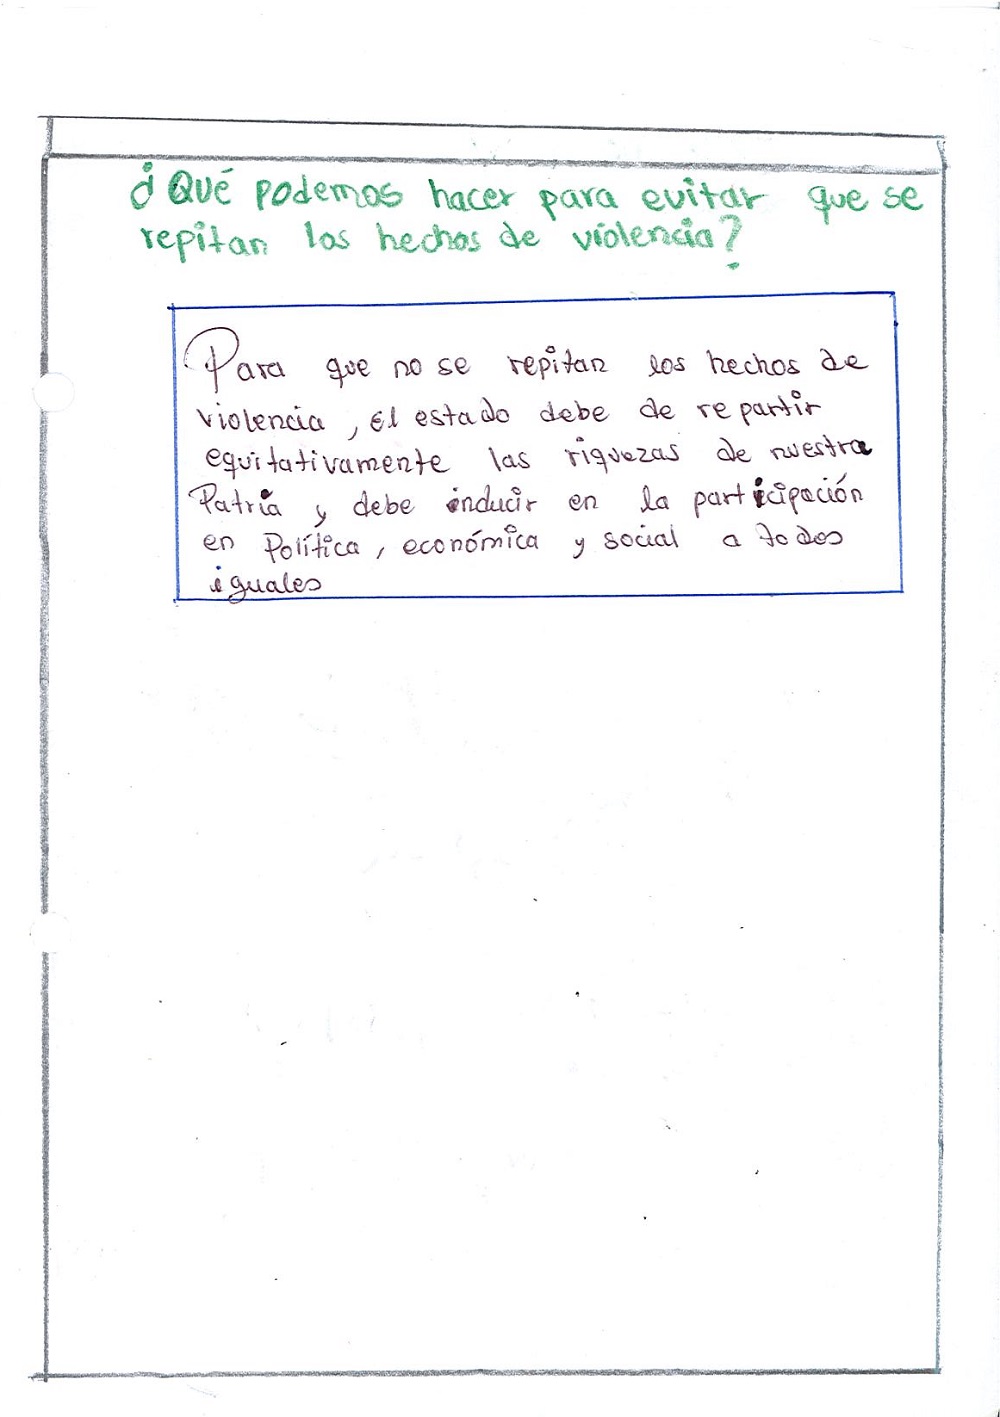 ¿Qué podemos hacer para evitar que se
repitan los hechos de violencia?
Para que no se repitan los hechos de
violencia, el estado debe de repartir
equitativamente las riquezas de nuestra
Patria y debe inducir en la participación
en Política, económica y social a todos
iguales